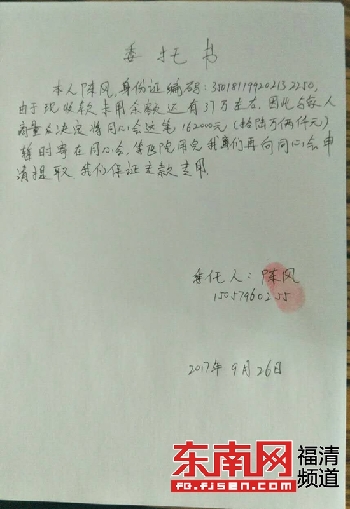 委托书
本人陈风,身份证编码:
由于现 款专用余额还有37万左右,因此与家人
商量后决定将同心会这笔162000元(拾陆万俩仟元)
暂时寄在同心会,等医院用完我们再向同心会申
请提取 我们保证专款专用
委托人:陈风
2017年9月26日
东南网 福清
频道
FQ.FJSEN.COM